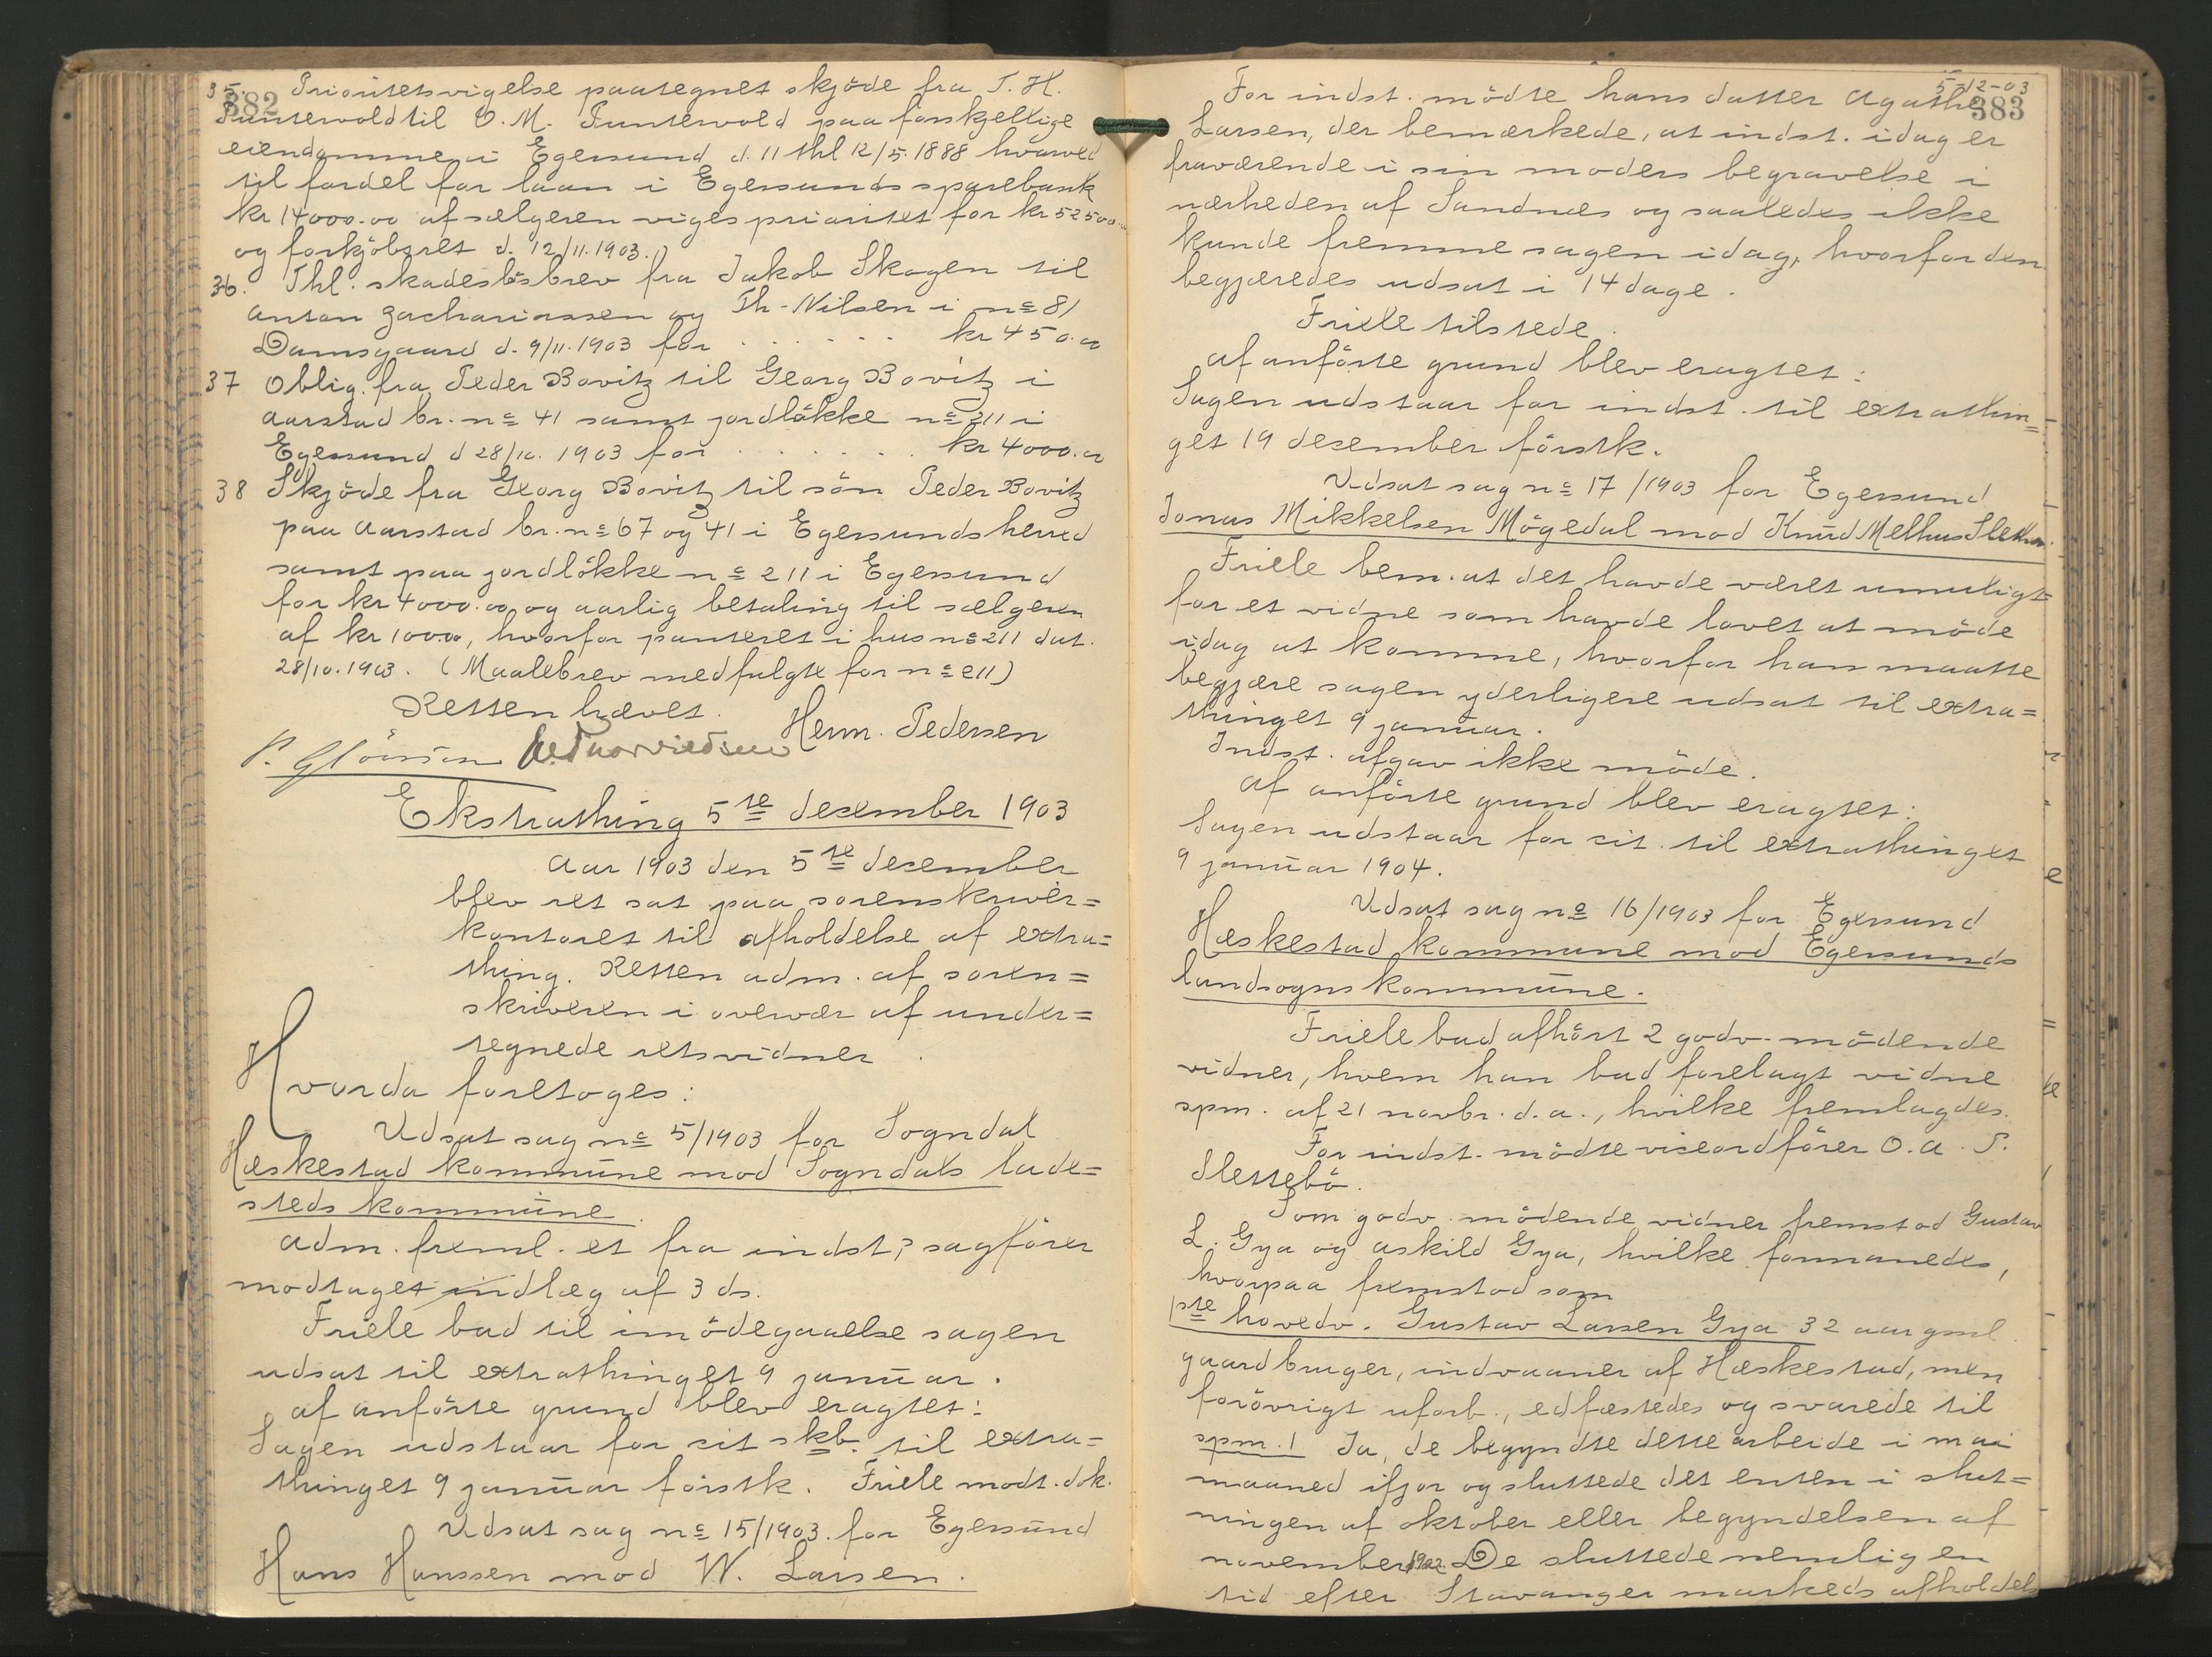 382
35. Prioritetsvigelse paategnet skjöde fra P. H.
Puntervold til O. M. Puntervold paa forskjellige
eiendomme i Egersund d. 11 thl 12/5. 1888 hvorved
til fordel for laan i Egersunds sparebank
kr 14000.00 af sælgeren viges prioritet for kr 52500.
og forkjöbsret d. 12/11. 1903.
36. Thl. skadeslösbrev fra Jakob Skogen til
Anton Zachariassen og Th. Nilsen i no 81
Damsgaard d. 9/11. 1903 for . . . . . . kr 450.00
37 Oblig. fra Peder Bovitz til Georg Bovitz i
Aarstad br. no 41 samt jordlökke no 211 i
Egersund d 28/10. 1903 for . . . . . . kr 4000.00
38 Skjöde fra Georg Bovitz til sön Peder Bovitz
paa Aarstad br. no 67 og 41 i Egersunds herred
samt paa jordlökke no 211 i Egersund
for kr 4000.00 og aarlig betaling til sælgeren
af kr 100.00, hvorfor panteret i hus no 211 dat.
28/10. 1903. (Maalebrev medfulgte for no 211)
Retten hævet.
Herm. Pedersen
Ekstrathing 5te desember 1903
Aar 1903 den 5te desember
blev ret sat paa sorenskriver=
kontoret til afholdelse af extra=
thing. Retten adm. af soren=
skriveren i overvær af under=
tegnede retsvidner.
Hvorda foretoges:
Udsat sag no 5/1903 for Sogndal
Heskestad kommune mod Sogndals lade=
steds kommune.
Adm. freml. et fra indst.s sagförer
modtaget indlæg af 3 ds.
Friele bad til imödegaaelse sagen
udsat til extrathinget 9 januar.
Af anförte grund blev eragtet:
Sagen udstaar for cit skb. til extra=
thinget 9 januar förstk. Friele modt. dok.
Udsat sag no 15/1903. for Egersund
Hans Hanssen mod W. Larsen.
5/12-03
383
For indst. mödte hans datter Agathe
Larsen, der bemærkede, at indst. idag er
fraværende i sin moders begravelse i
nærheden af Sandnæs og saaledes ikke
kunde fremme sagen idag, hvorfor den
begjæredes udsat i 14 dage.
Friele tilstede.
Af anförte grund blev eragtet:
Sagen udstaar for indst. til extrathin=
get 19 desember förstk.
Udsat sag no 17/1903 for Egersund
Jonas Mikkelsen Mögedal mod Knud Melhus Sletten.
Friele bem. at det havde været umuligt
for et vidne som havde lovet at möde
idag at komme, hvorfor han maatte
begjære sagen yderligere udsat til extra=
thinget 9 januar.
Indst. afgav ikke möde.
Af anförte grund blev eragtet:
Sagen udstaar for cit. til extrathinget
9 januar 1904.
Udsat sag no 16/1903 for Egersund
Heskestad kommune mod Egersunds
landsogns kommune.
Friele bad afhört 2 godv. mödende
vidner, hvem han bad forelagt vidne
spm. af 21 novbr. d. a., hvilke fremlagdes.
For indst. mödte viceordförer O. A. T.
Slettebö.
Som godv. mödende vidner fremstod Gustav
L. Gya og Askild Gya, hvilke formanedes,
hvorpaa fremstod som
1ste hovedv. Gustav Larsen Gya 32 aar gml.
gaardbruger, indvaaner af Heskestad, men
forövrigt uforb., edfæstedes og svarede til
spm. 1 Ja, de begyndte dette arbeide i mai
maaned ifjor og sluttede det enten i slut=
ningen af oktober eller begyndelsen af
november 1902. De sluttede nemlig en
tid efter Stavanger markeds afholdels